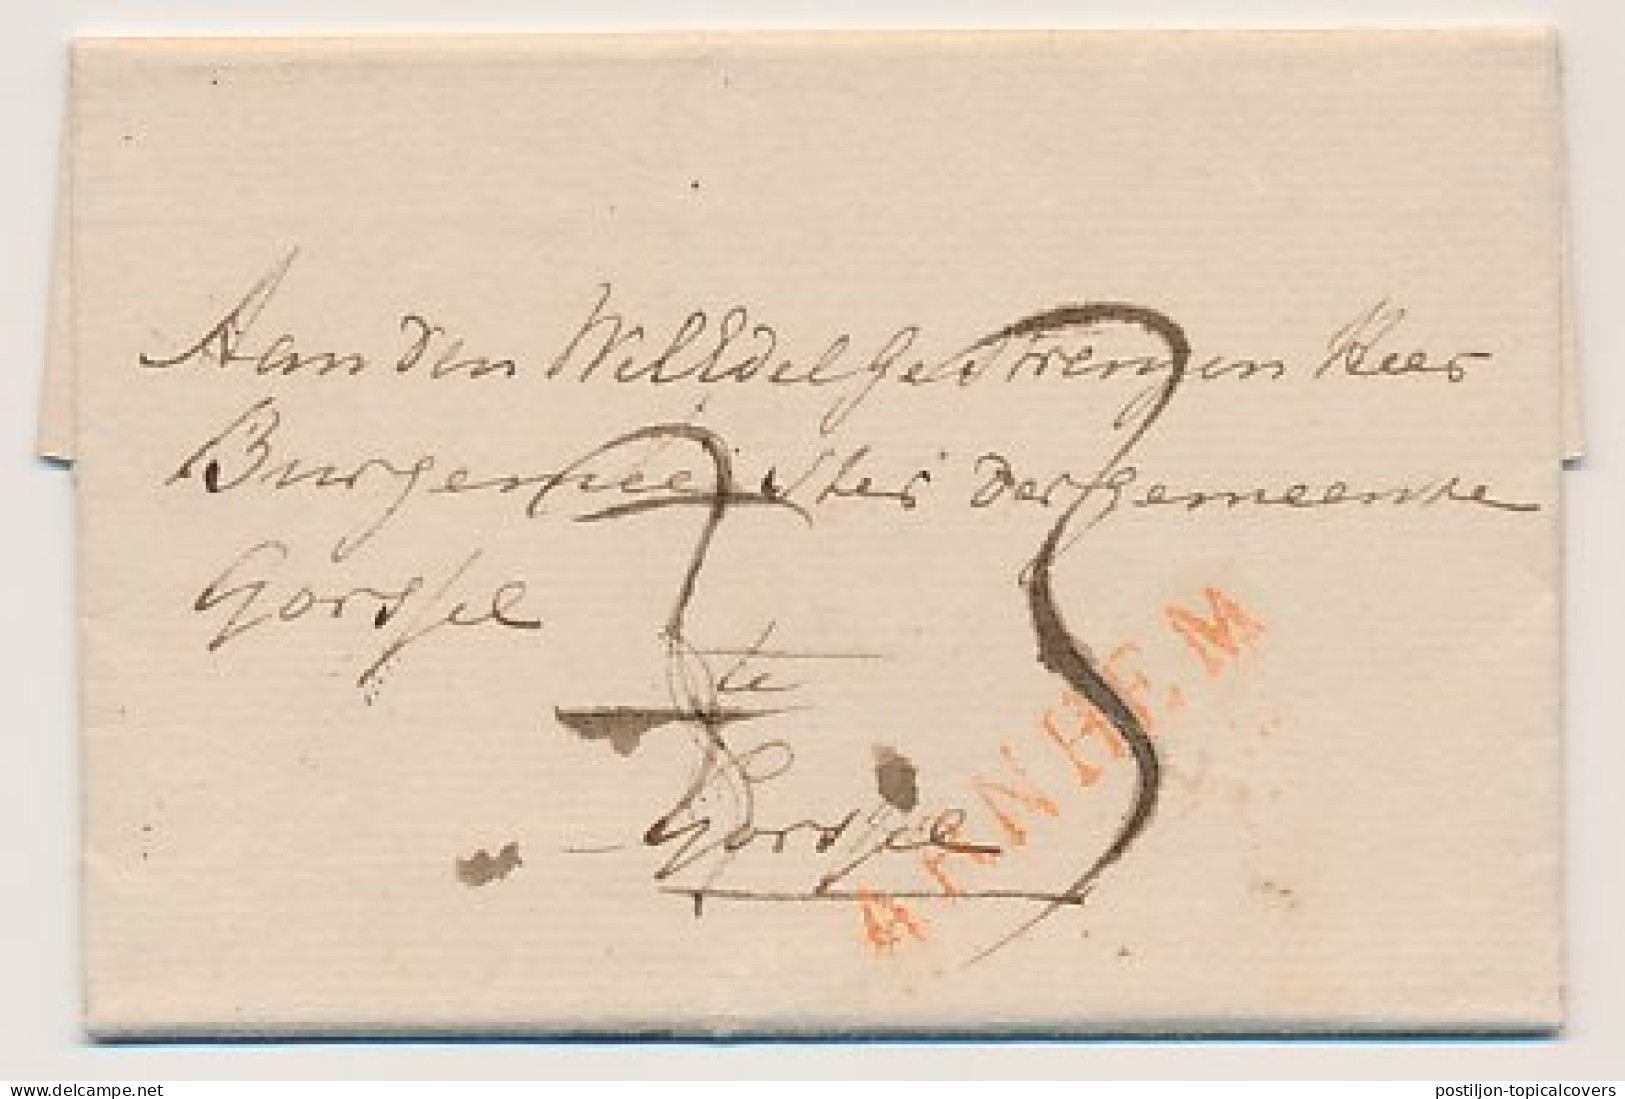 Aan den WelEdelGestrengen Heer
Burgemeester der gemeente
Gorssel
te
Gorssel
ARNHEM
delcampe.net
postiljon-topicalcovers